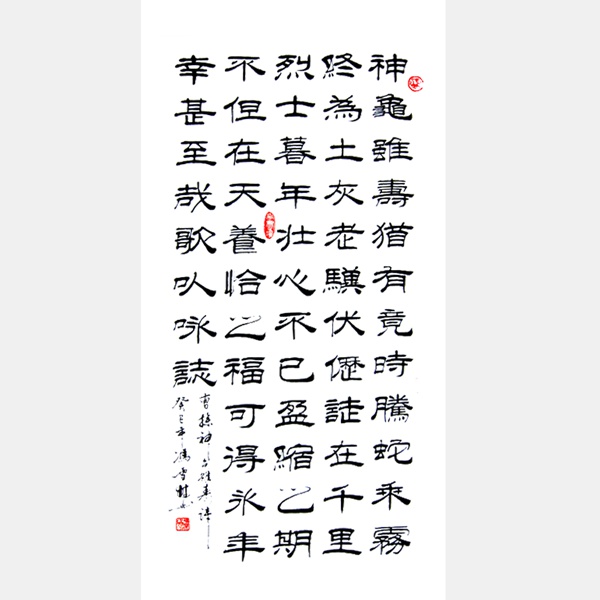 神龜雖壽猶有竟時騰蛇乘霧
終為土灰老驥伏櫪誌在千里
烈士暮年壯心不已盈縮之期
不但在天養怡之福可得永年
幸甚至哉歌以咏誌
曹操神龟雖寿诗
癸巳年冯雪